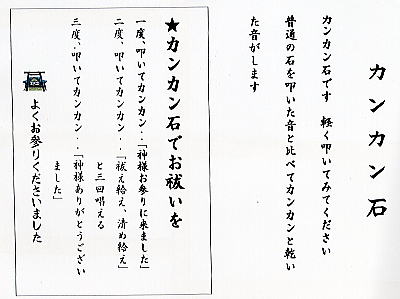 カンカン石
カンカン石です 軽く叩いてみてください
普通の石を叩いた音と比べてカンカンと乾い
た音がします
★カンカン石でお祓いを
一度、叩いてカンカン・・「神様お参りに来ました」
二度、叩いてカンカン・・「祓え給え、清め給え」
と三回唱える
三度、叩いてカンカン・・「神様ありがとうござい
ました」
よくお参りくださいました